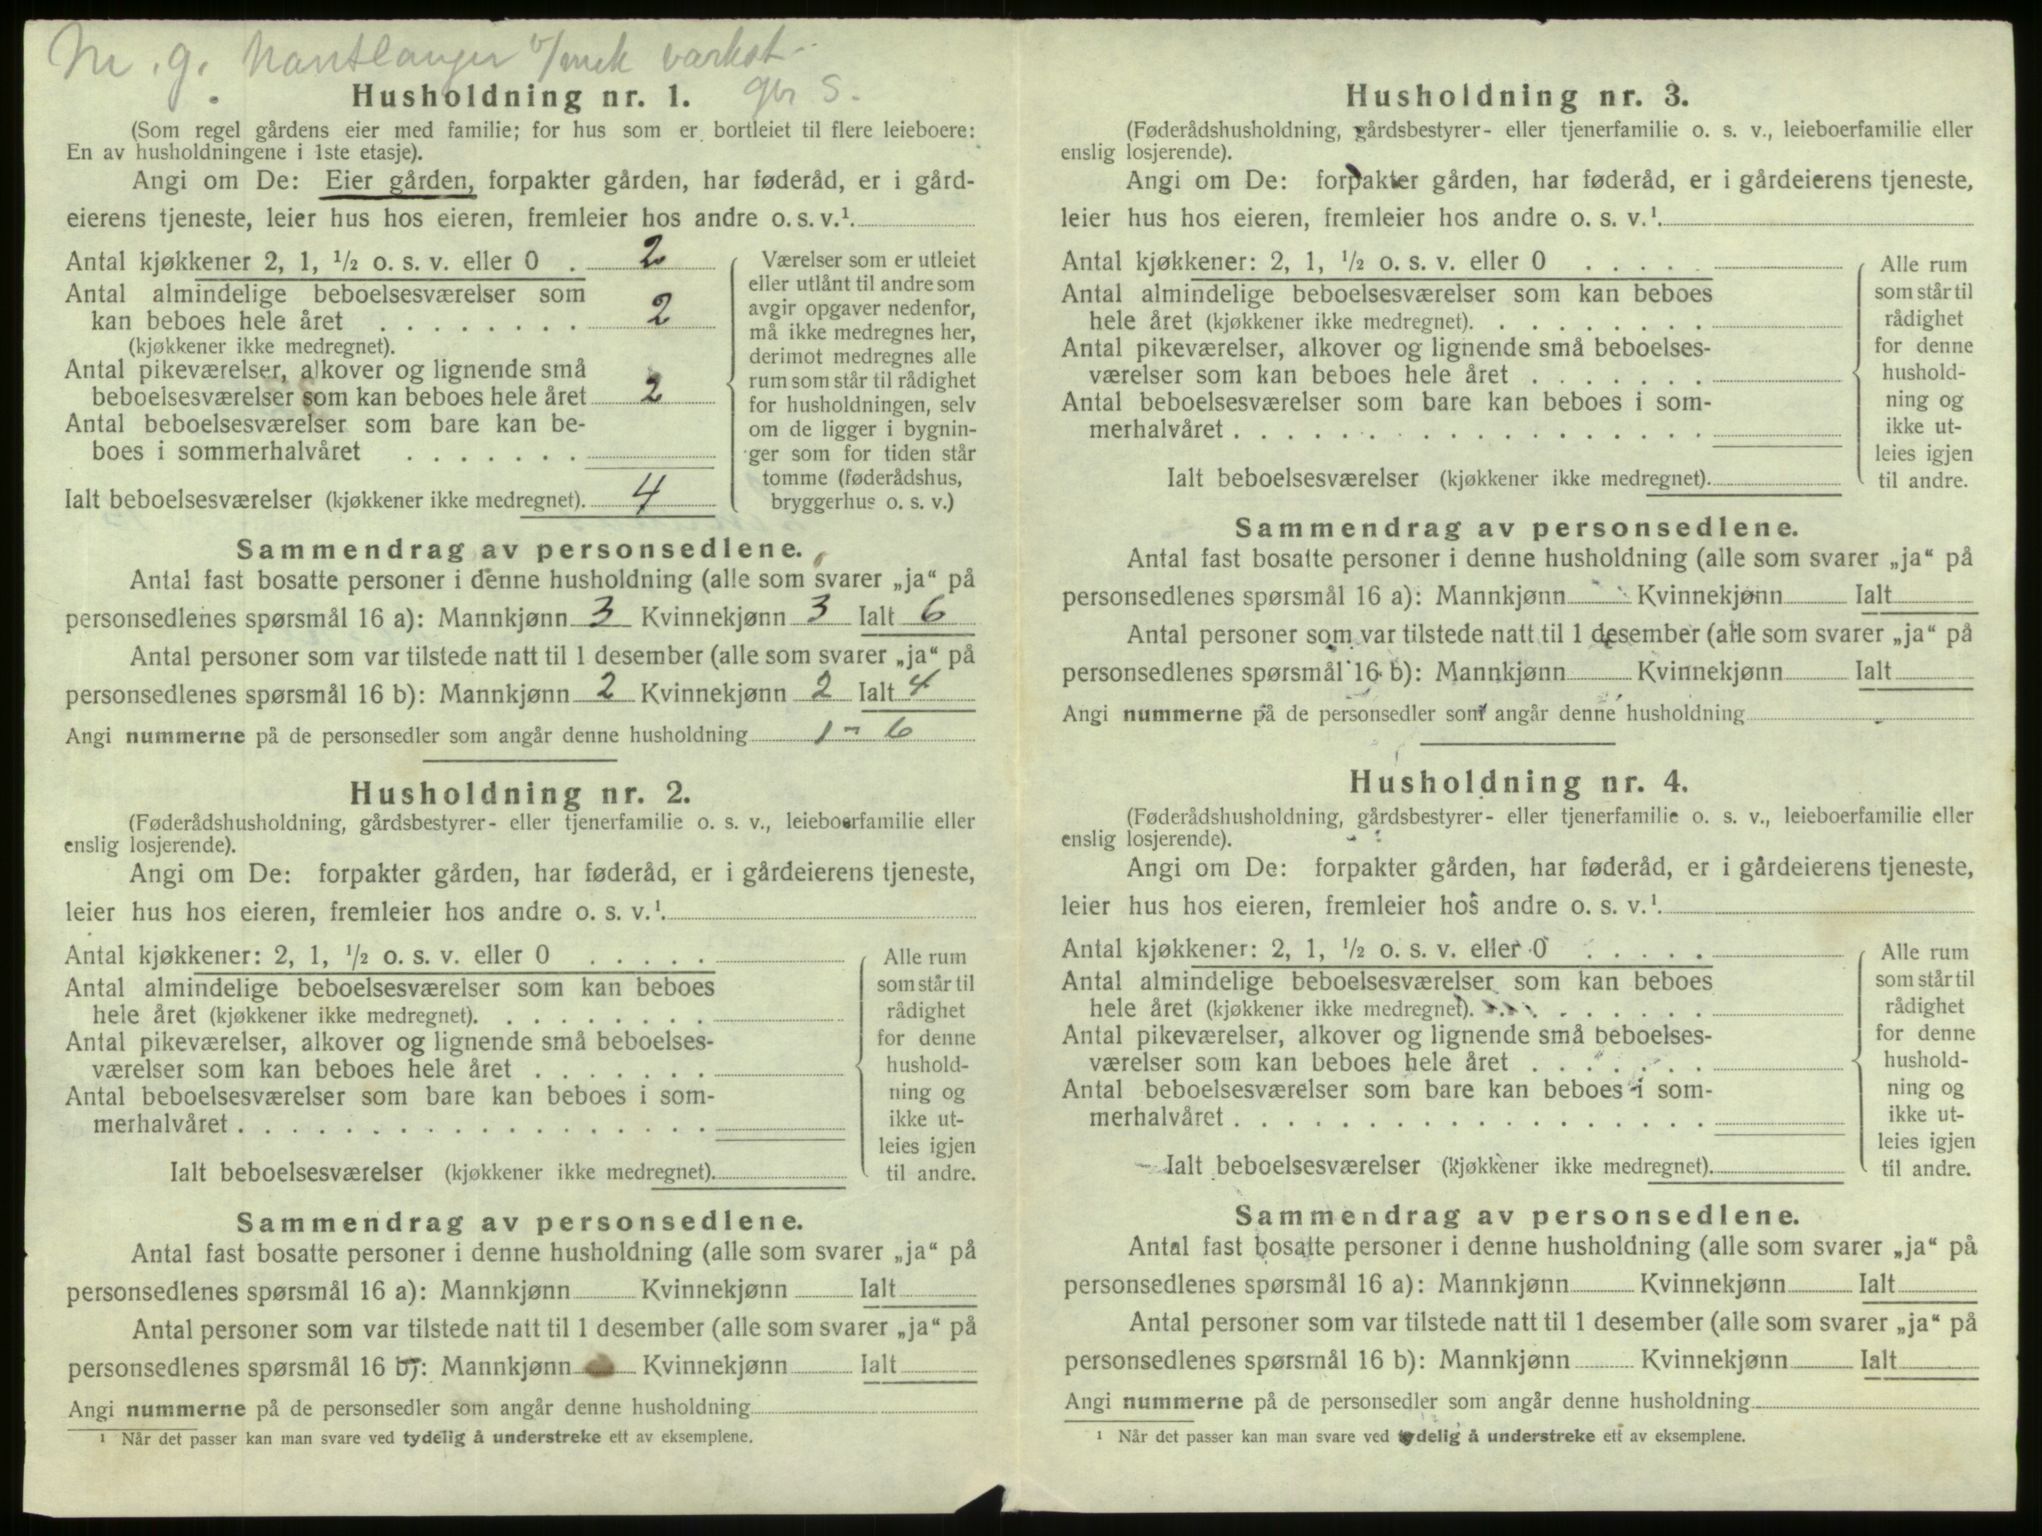 M. g. Hantlanger v/mek varkst.
gbr S.
Husholdning nr. 1.
(Som regel gårdens eier med familie; for hus som er bortleiet til flere leieboere:
En av husholdningene i 1ste etasje).
Angi om De: Eier gården, forpakter gården, har føderåd, er i gård-
eierens tjeneste, leier hus hos eieren, fremleier hos andre o. s. v.¹.
Antal kjøkkener 2, 1, ½ o. s. v. eller 0 . 2
Antal almindelige beboelsesværelser som
kan beboes hele året . . . . . . . . 2
(kjøkkener ikke medregnet).
Antal pikeværelser, alkover og lignende små
beboelsesværelser som kan beboes hele året 2
Antal beboelsesværelser som bare kan be-
boes i sommerhalvåret . . . . . . .
Ialt beboelsesværelser (kjøkkener ikke medregnet). 4
Værelser som er utleiet
eller utlånt til andre som
avgir opgaver nedenfor,
må ikke medregnes her,
derimot medregnes alle
rum som står til rådighet
for husholdningen, selv
om de ligger i bygnin-
ger som for tiden står
tomme (føderådshus,
bryggerhus o. s. v.)
Sammendrag av personsedlene.
Antal fast bosatte personer i denne husholdning (alle som svarer „ja“ på
personsedlenes spørsmål 16 a): Mannkjønn 3 Kvinnekjønn 3 Ialt 6
Antal personer som var tilstede natt til 1 desember (alle som svarer „ja“ på
personsedlenes spørsmål 16 b): Mannkjønn 2 Kvinnekjønn 2 Ialt 4
Angi nummerne på de personsedler som angår denne husholdning 1 - 6
Husholdning nr. 2.
(Føderådshusholdning, gårdsbestyrer- eller tjenerfamilie o. s. v., leieboerfamilie eller
enslig losjerende).
Angi om De: forpakter gården, har føderåd, er i gårdeierens tjeneste,
leier hus hos eieren, fremleier hos andre o. s. v.¹.
Antal kjøkkener: 2, 1, ½ o. s. v. eller 0 . . . . .
Antal almindelige beboelsesværelser som kan beboes
hele året (kjøkkener ikke medregnet). . . . . . . . .
Antal pikeværelser, alkover og lignende små beboelses-
værelser som kan beboes hele året . . . . . . .
Antal beboelsesværelser som bare kan beboes i som-
merhalvåret . . . . . . . . . . . . . . . . . .
Ialt beboelsesværelser (kjøkkener ikke medregnet).
Alle rum
som står til
rådighet
for denne
hushold-
ning og
ikke ut-
leies igjen
til andre.
Sammendrag av personsedlene.
Antal fast bosatte personer i denne husholdning (alle som svarer „ja“ på
personsedlenes spørsmål 16 a): Mannkjønn Kvinnekjønn Ialt
Antal personer som var tilstede natt til 1 desember (alle som svarer „ja“ på
personsedlenes spørsmål 16 b): Mannkjønn Kvinnekjønn Ialt
Angi nummerne på de personsedler som angår denne husholdning
¹ Når det passer kan man svare ved tydelig å understreke ett av eksemplene.
Husholdning nr. 3.
(Føderådshusholdning, gårdsbestyrer- eller tjenerfamilie o. s. v., leieboerfamilie eller
enslig losjerende).
Angi om De: forpakter gården, har føderåd, er i gårdeierens tjeneste,
leier hus hos eieren, fremleier hos andre o. s. v.¹.
Antal kjøkkener: 2, 1, ½ o. s. v. eller 0 . . . . .
Antal almindelige beboelsesværelser som kan beboes
hele året (kjøkkener ikke medregnet). . . . . . . . .
Antal pikeværelser, alkover og lignende små beboelses-
værelser som kan beboes hele året . . . . . . .
Antal beboelsesværelser som bare kan beboes i som-
merhalvåret . . . . . . . . . . . . . . . . . .
Ialt beboelsesværelser (kjøkkener ikke medregnet).
Alle rum
som står til
rådighet
for denne
hushold-
ning og
ikke ut-
leies igjen
til andre.
Sammendrag av personsedlene.
Antal fast bosatte personer i denne husholdning (alle som svarer „ja“ på
personsedlenes spørsmål 16 a): Mannkjønn Kvinnekjønn Ialt
Antal personer som var tilstede natt til 1 desember (alle som svarer „ja“ på
personsedlenes spørsmål 16 b): Mannkjønn Kvinnekjønn Ialt
Angi nummerne på de personsedler som angår denne husholdning
Husholdning nr. 4.
(Føderådshusholdning, gårdsbestyrer- eller tjenerfamilie o. s. v., leieboerfamilie eller
enslig losjerende).
Angi om De: forpakter gården, har føderåd, er i gårdeierens tjeneste,
leier hus hos eieren, fremleier hos andre o. s. v.¹.
Antal kjøkkener: 2, 1, ½ o. s. v. eller 0 . . . . .
Antal almindelige beboelsesværelser som kan beboes
hele året (kjøkkener ikke medregnet). . . . . . . . .
Antal pikeværelser, alkover og lignende små beboelses-
værelser som kan beboes hele året . . . . . . .
Antal beboelsesværelser som bare kan beboes i som-
merhalvåret . . . . . . . . . . . . . . . . . .
Ialt beboelsesværelser (kjøkkener ikke medregnet).
Alle rum
som står til
rådighet
for denne
hushold-
ning og
ikke ut-
leies igjen
til andre.
Sammendrag av personsedlene.
Antal fast bosatte personer i denne husholdning (alle som svarer „ja“ på
personsedlenes spørsmål 16 a): Mannkjønn Kvinnekjønn Ialt
Antal personer som var tilstede natt til 1 desember (alle som svarer „ja“ på
personsedlenes spørsmål 16 b): Mannkjønn Kvinnekjønn Ialt
Angi nummerne på de personsedler som angår denne husholdning
¹ Når det passer kan man svare ved tydelig å understreke ett av eksemplene.